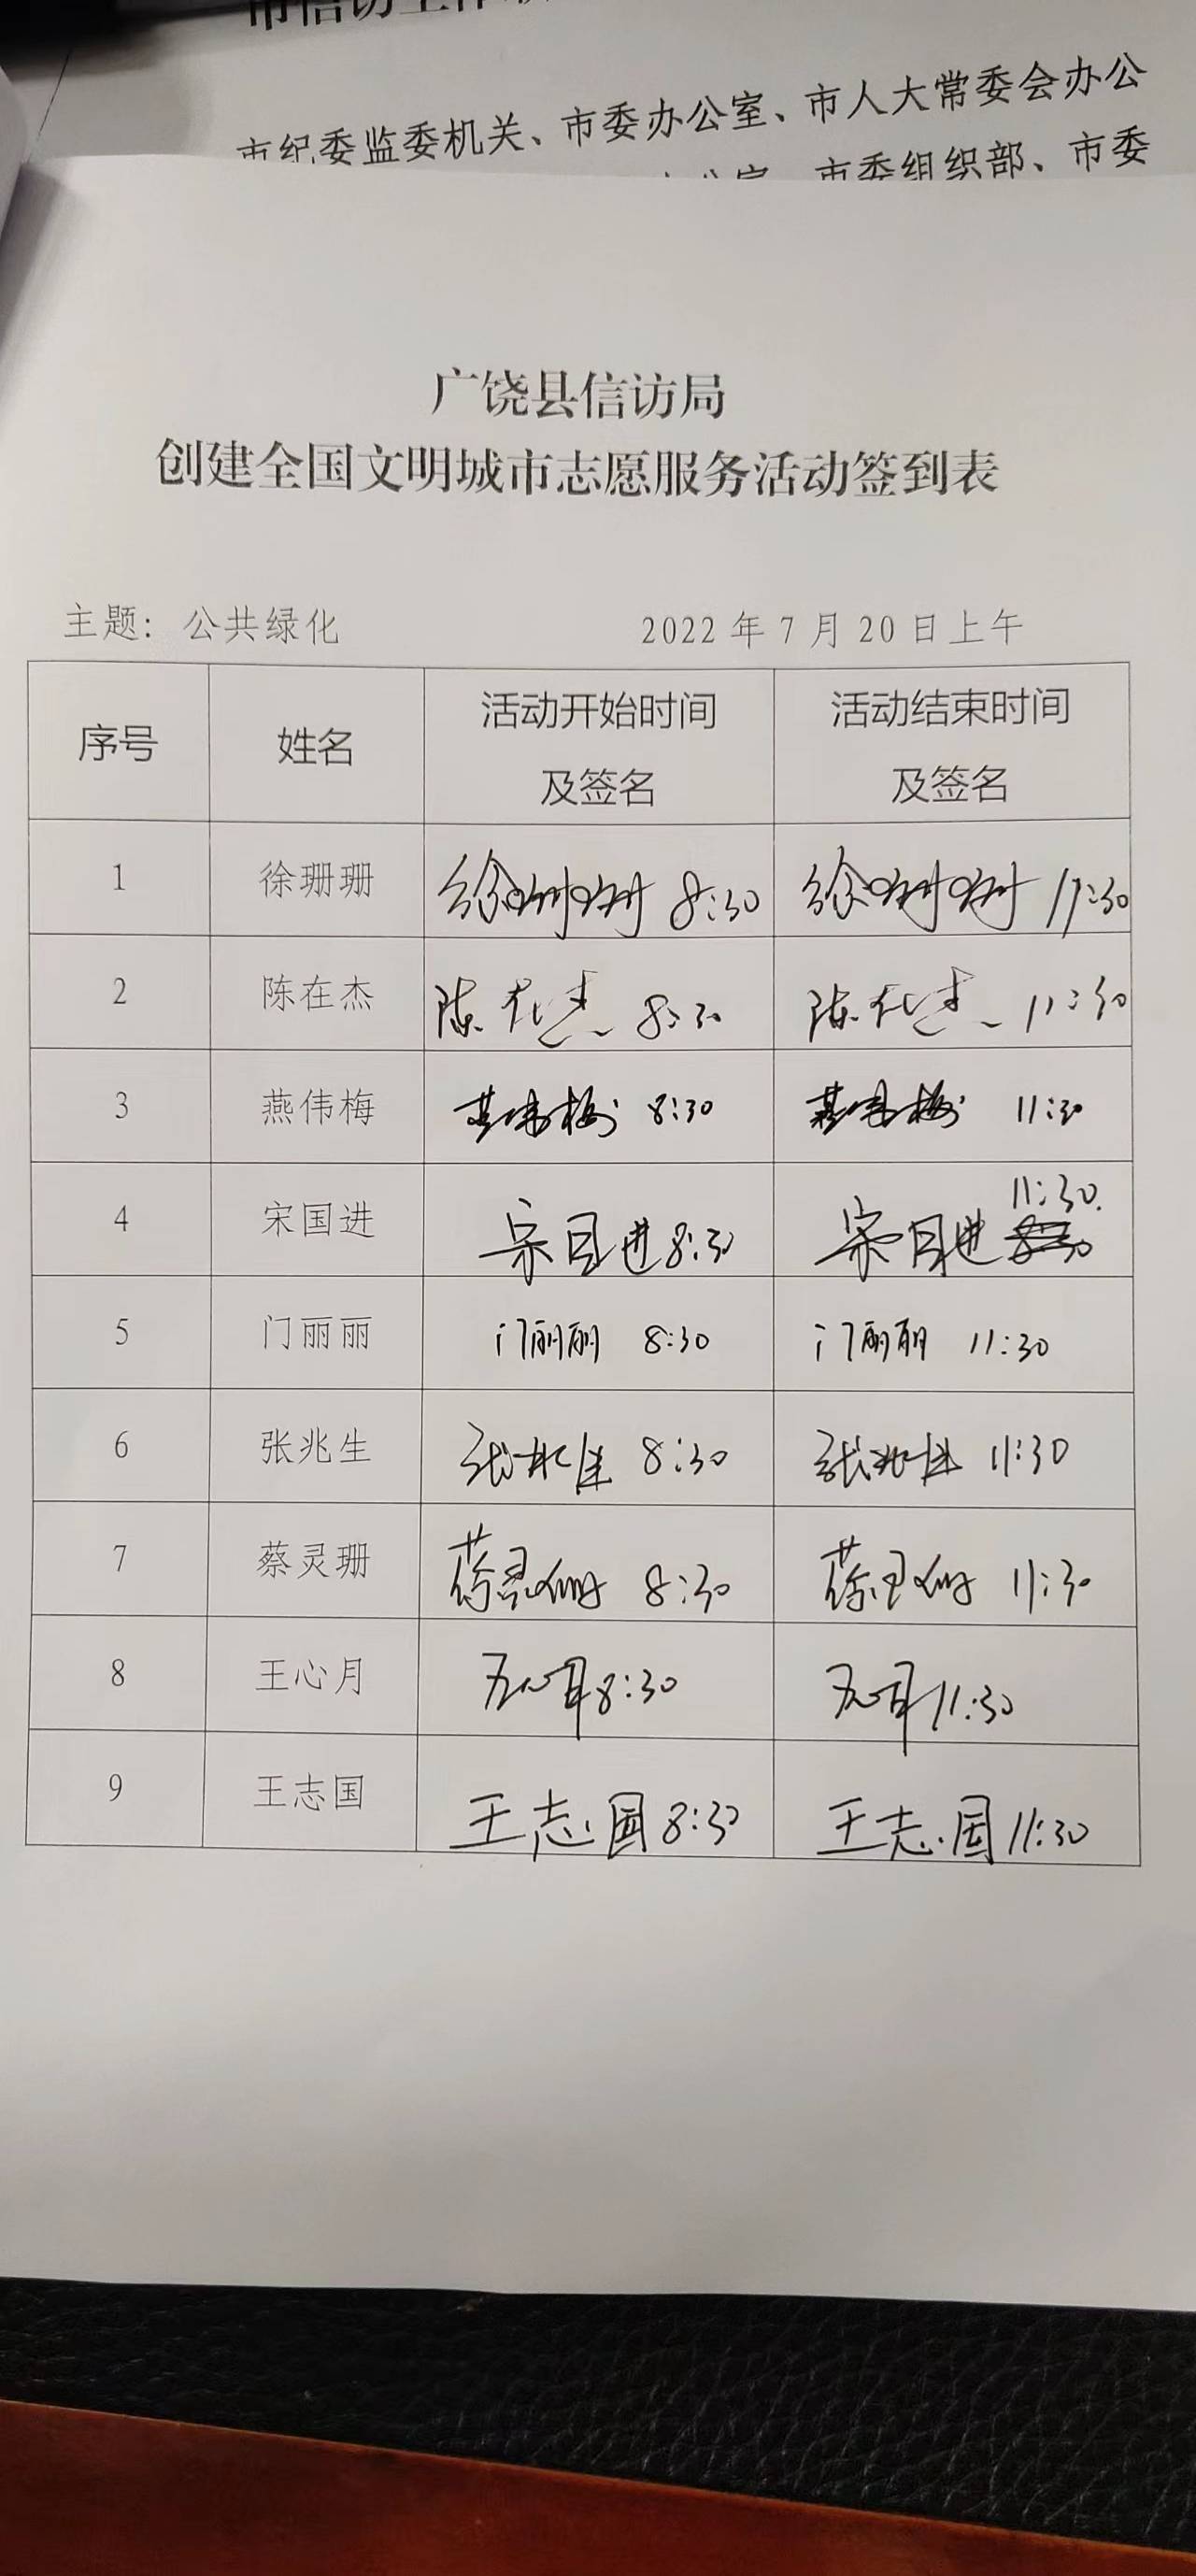 市纪委监委机关、市委办公室、市人大常委会办公
市委组织部、市委
广饶县信访局
创建全国文明城市志愿服务活动签到表
主题：公共绿化 2022年7月20日上午
序号 姓名 活动开始时间及签名 活动结束时间及签名
1 徐珊珊 徐珊珊 8:30 徐珊珊 11:30
2 陈在杰 陈在杰 8:30 陈在杰 11:30
3 燕伟梅 燕伟梅 8:30 燕伟梅 11:30
4 宋国进 宋国进 8:30 宋国进 11:30
5 门丽丽 门丽丽 8:30 门丽丽 11:30
6 张兆生 张兆生 8:30 张兆生 11:30
7 蔡灵珊 蔡灵珊 8:30 蔡灵珊 11:30
8 王心月 王心月 8:30 王心月 11:30
9 王志国 王志国 8:30 王志国 11:30